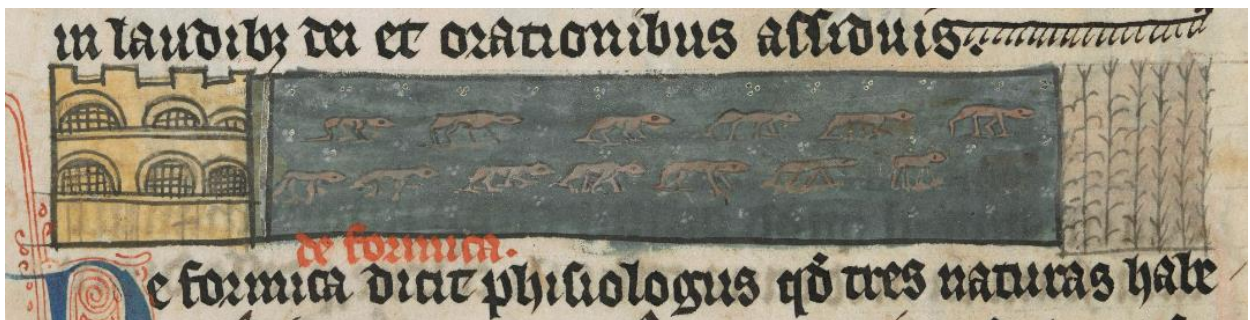 in laudibꝫ dei et orationibus assiduis.
de formica.
De formica dicit phisiologus qđ tres naturas habe